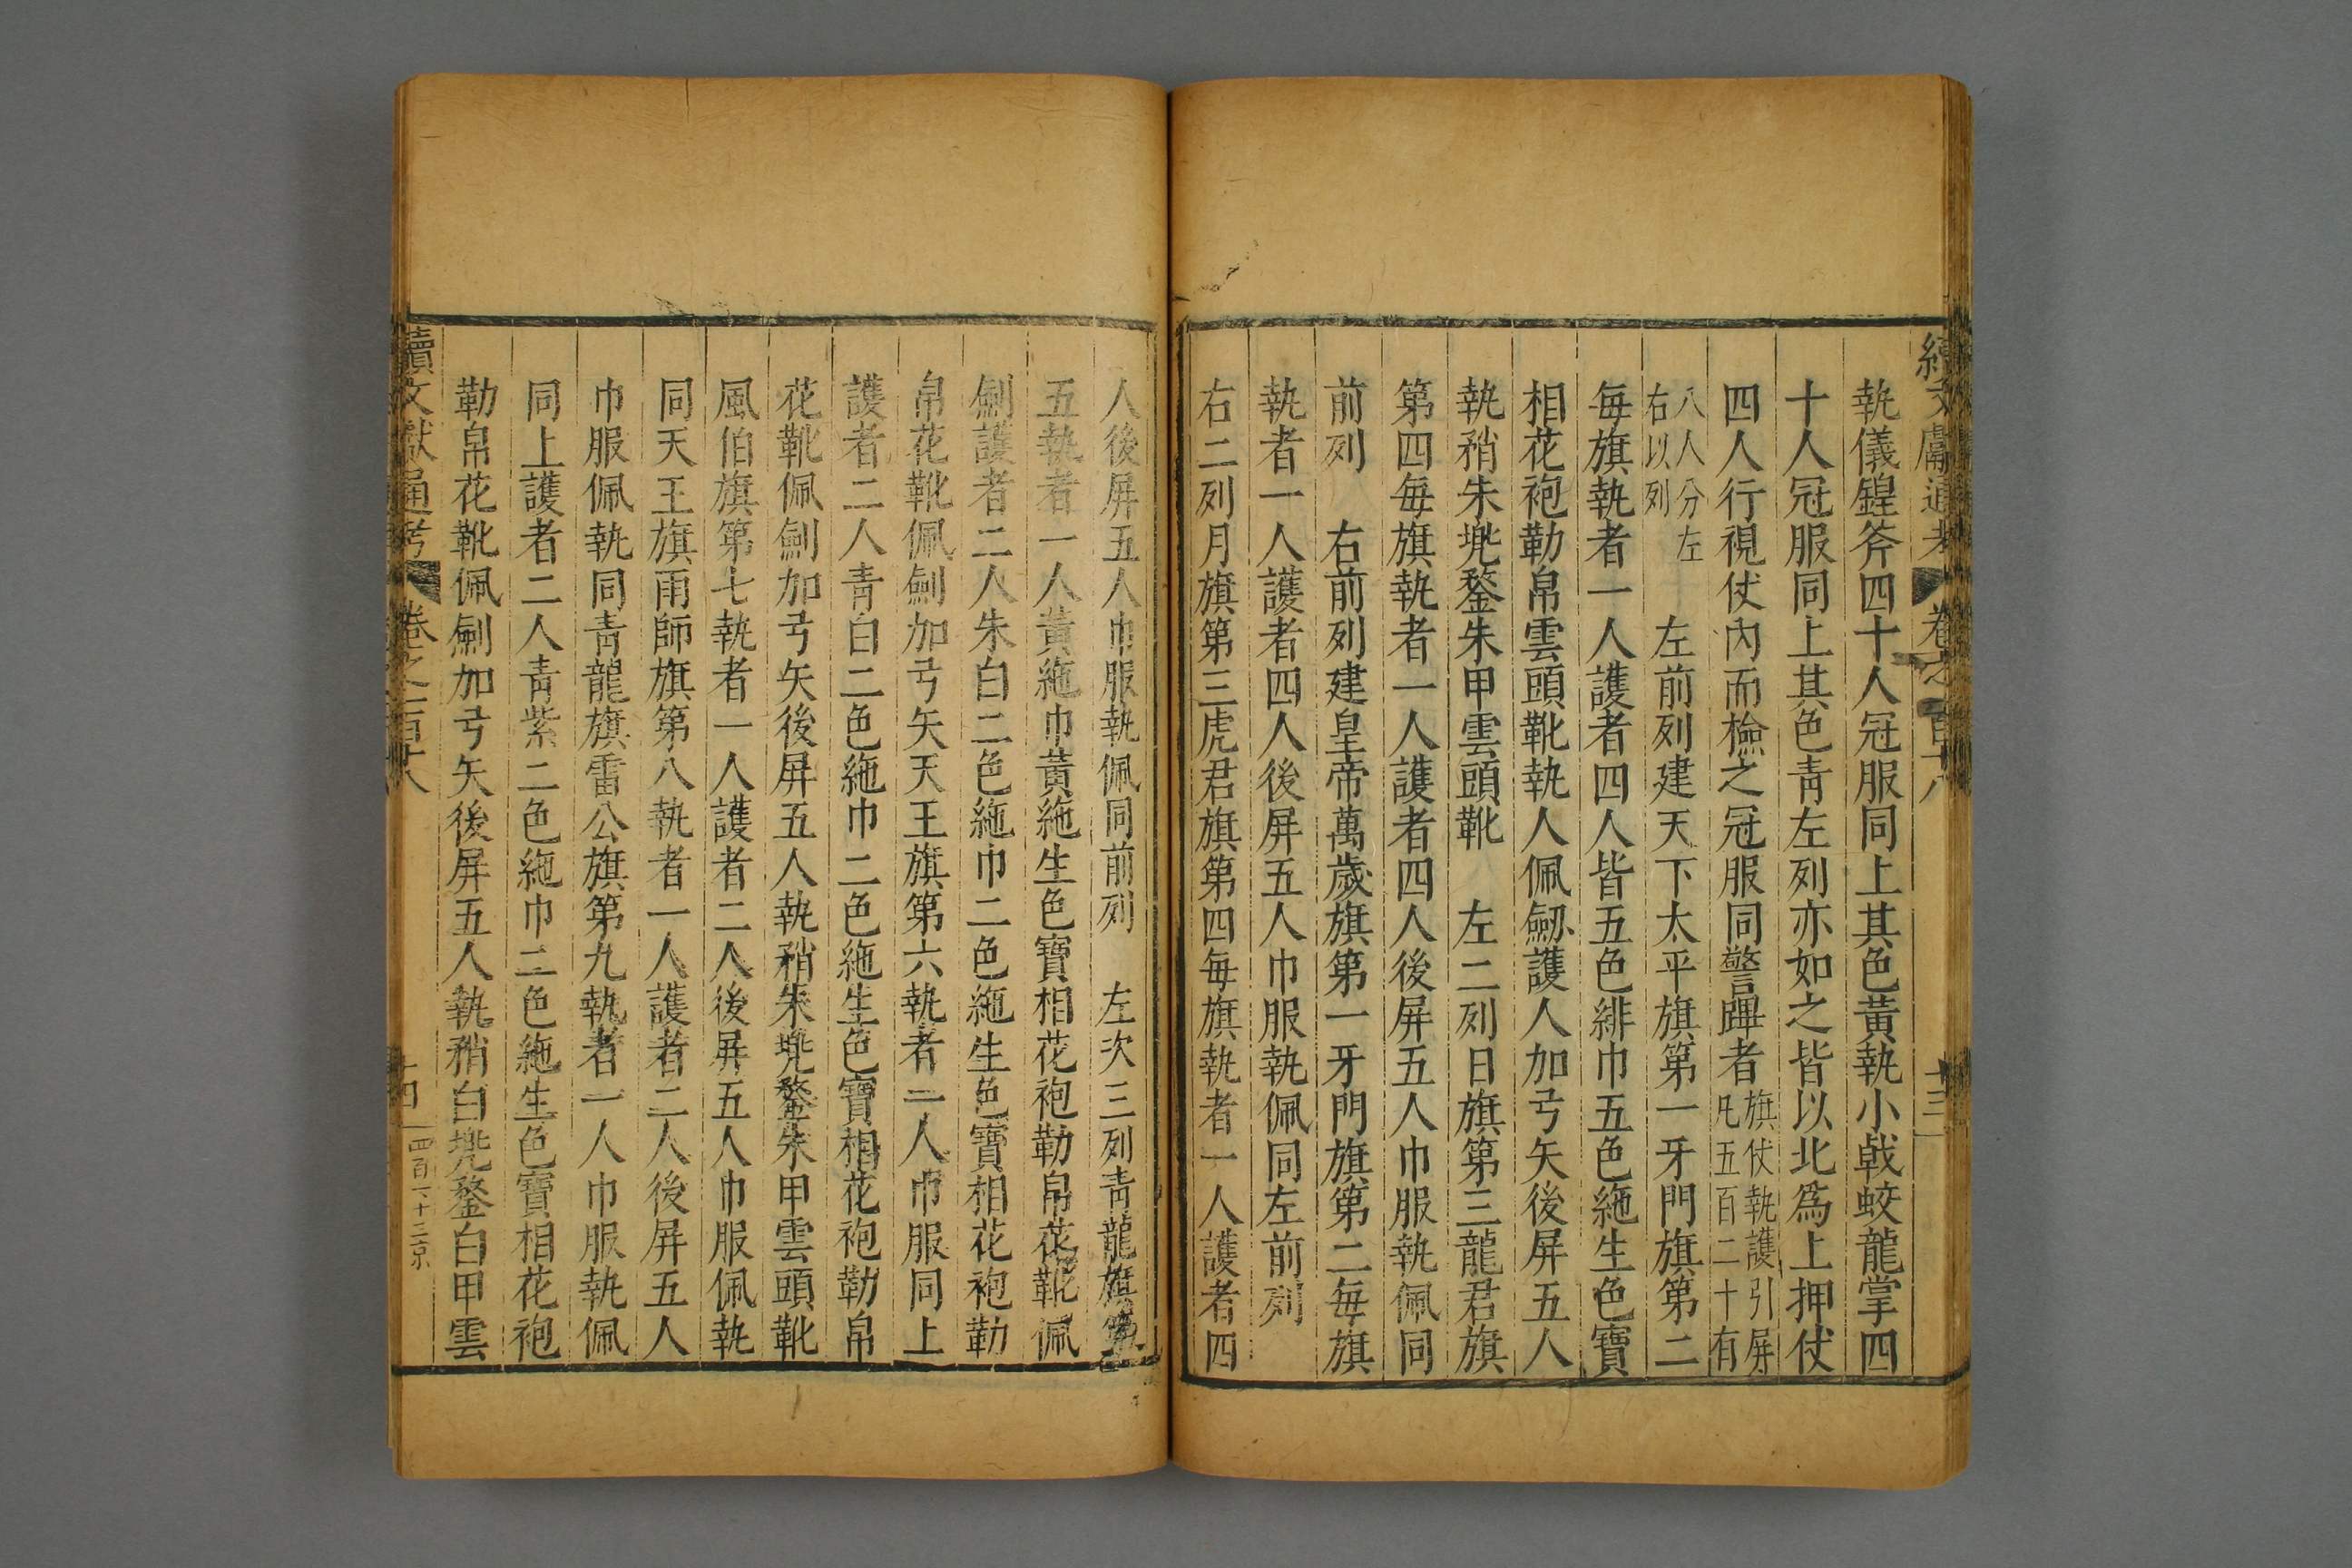 續文獻通考 卷之百十八 十三
執儀鍠斧四十人冠服同上其色黃執小戟蛟龍掌四
十人冠服同上其色靑左列亦如之皆以北爲上押仗
四人行視仗內而檢之冠服同警蹕者旗仗執護引屏凡五百二十有
八人分左右以列 左前列建天下太平旗第一牙門旗第二
每旗執者一人護者四人皆五色緋巾五色絁生色寶
相花袍勒帛雲頭靴執人佩劒護人加弓矢後屏五人
執矟朱兠鍪朱甲雲頭靴 左二列日旗第三龍君旗
第四每旗執者一人護者四人後屏五人巾服執佩同
前列 右前列建皇帝萬歲旗第一牙門旗第二每旗
執者一人護者四人後屏五人巾服執佩同左前列
右二列月旗第三虎君旗第四每旗執者一人護者四
人後屏五人巾服執佩同前列 左次三列靑龍旗第
五執者一人黃絁巾黃絁生色寶相花袍勒帛花靴佩
劒護者二人朱白二色絁巾二色絁生色寶相花袍勒
帛花靴佩劒加弓矢天王旗第六執者一人巾服同上
護者二人青白二色絁巾二色絁生色寶相花袍勒帛
花靴佩劒加弓矢後屏五人執矟朱兠鍪朱甲雲頭靴
風伯旗第七執者一人護者二人後屏五人巾服佩執
同天王旗雨師旗第八執者一人護者二人後屏五人
巾服佩執同靑龍旗雷公旗第九執者一人巾服執佩
同上護者二人靑紫二色絁巾二色絁生色寶相花袍
勒帛花靴佩劒加弓矢後屏五人執矟白兠鍪白甲雲
續文獻通考 卷之百十八 十四 四百六十三京